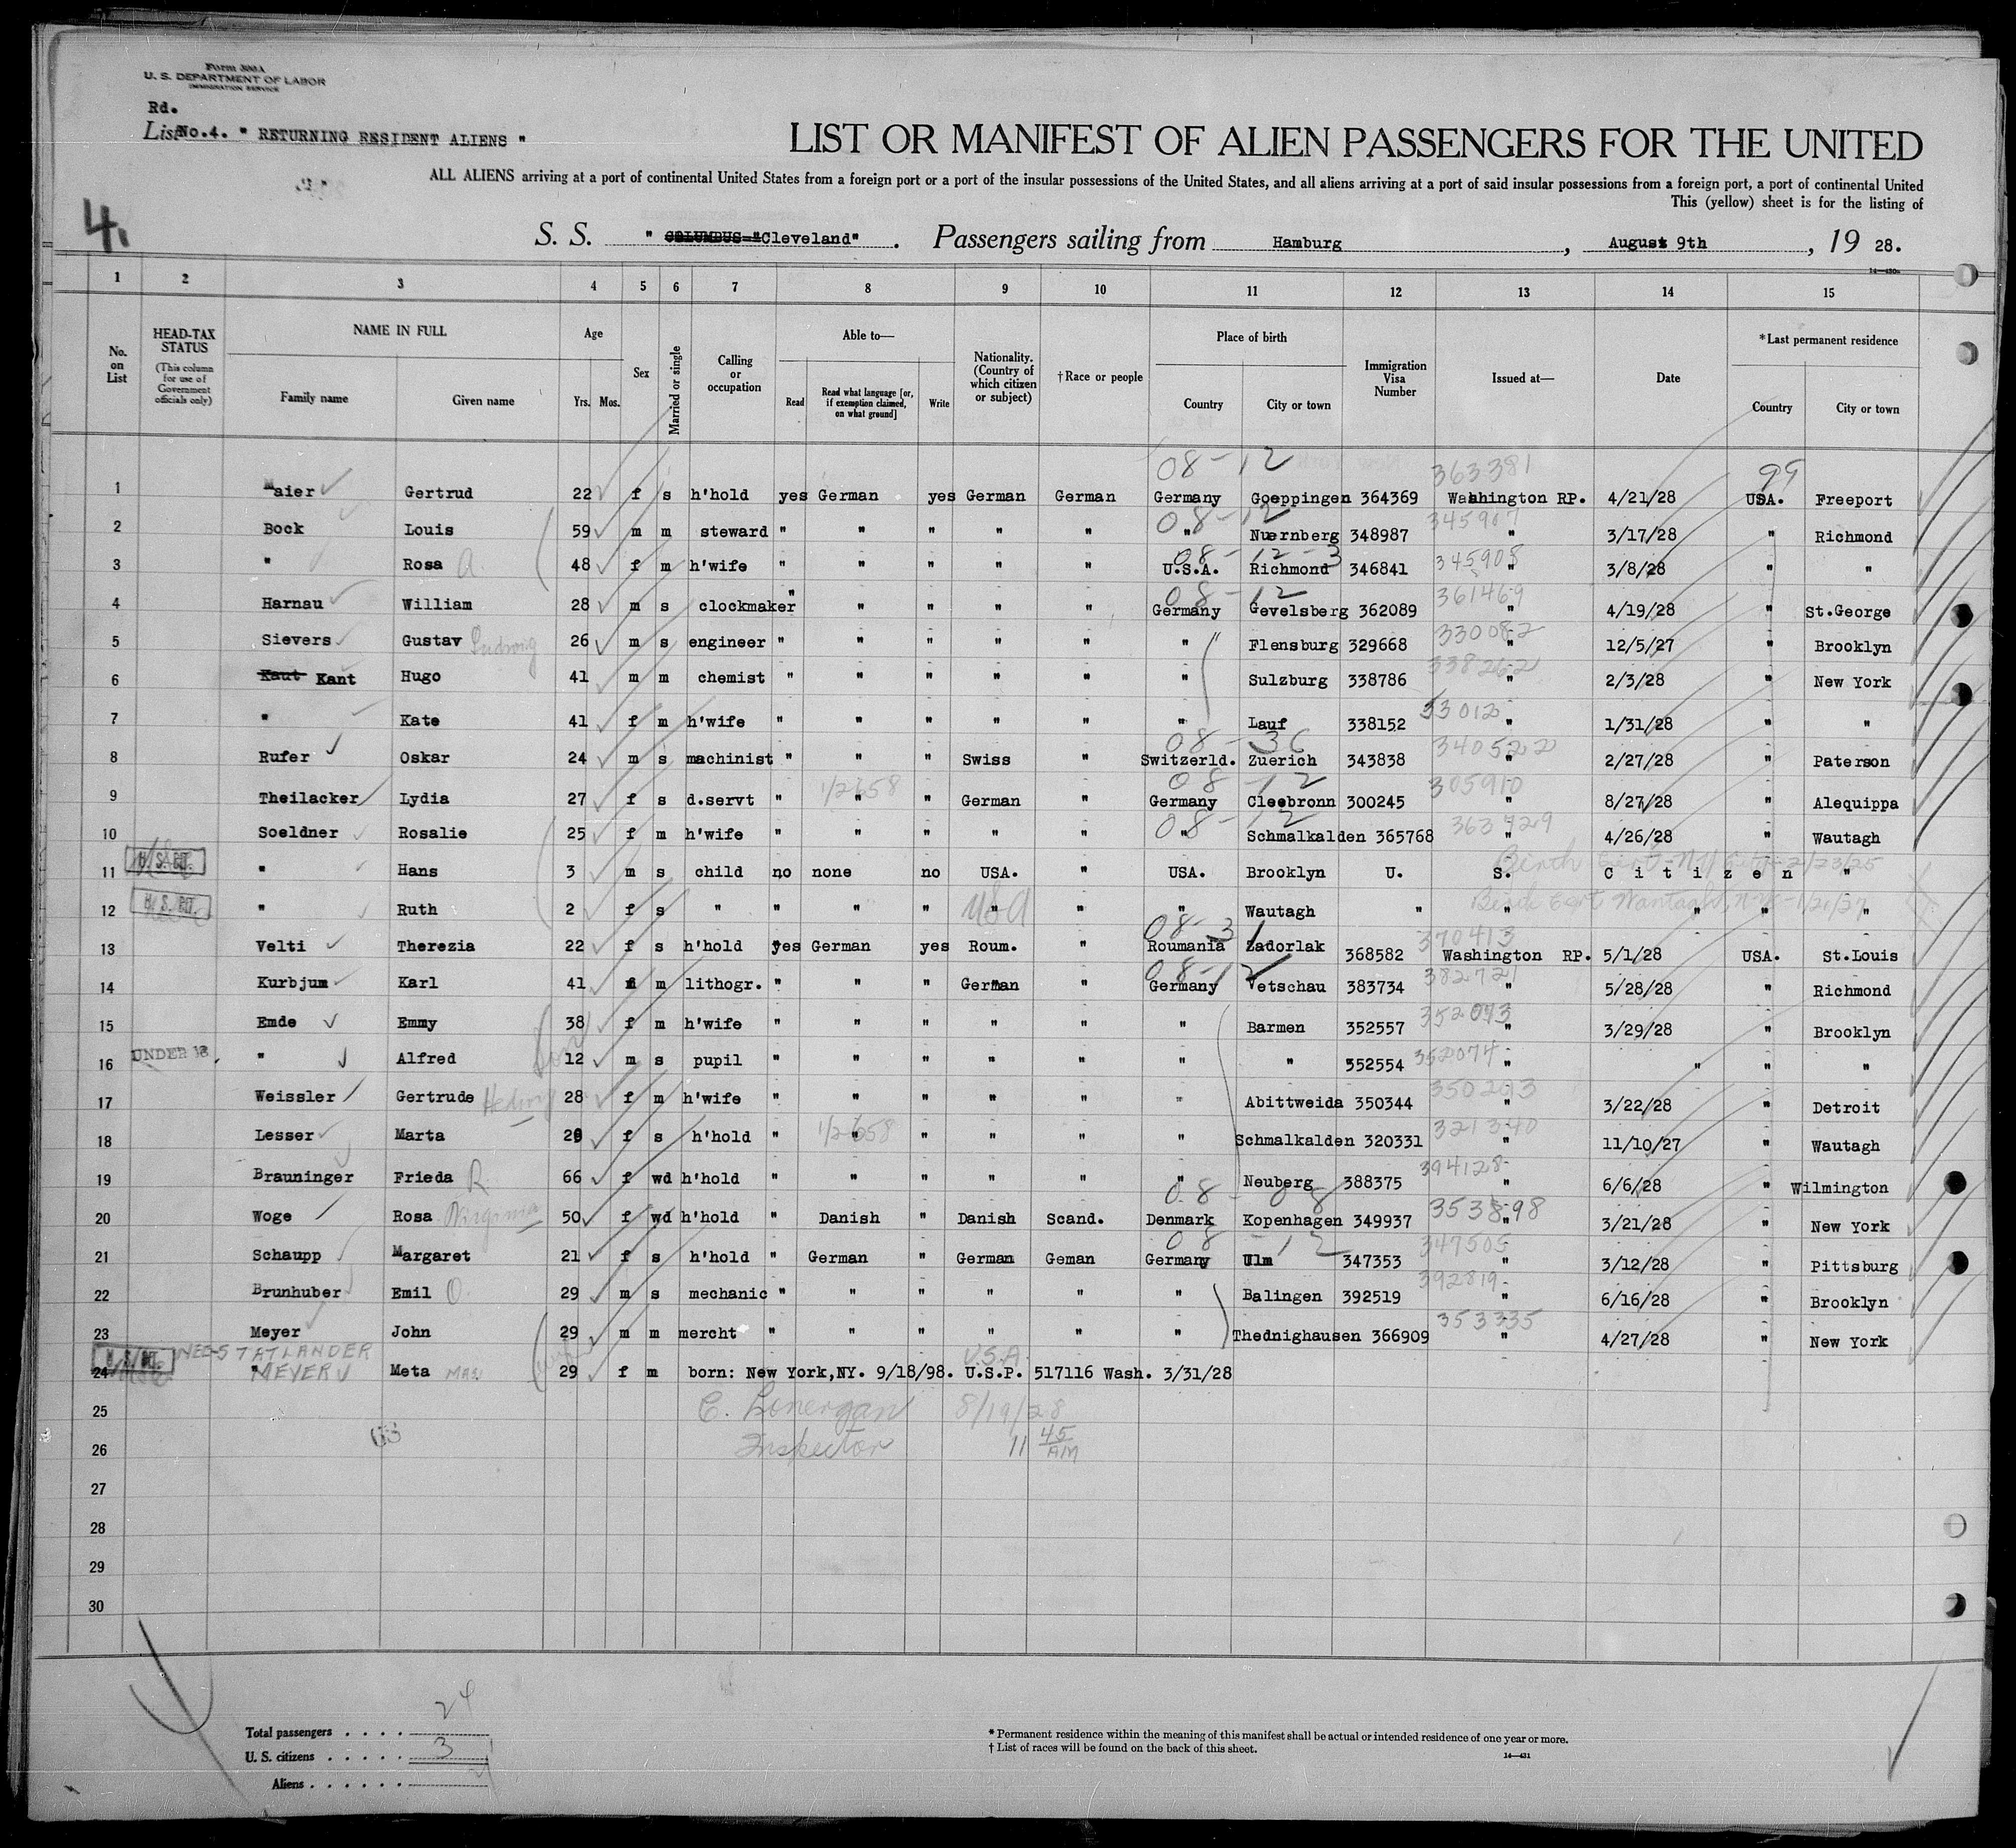 Form 500A
U. S. DEPARTMENT OF LABOR
IMMIGRATION SERVICE
Rd.
List No.4. " RETURNING RESIDENT ALIENS "
LIST OR MANIFEST OF ALIEN PASSENGERS FOR THE UNITED
ALL ALIENS arriving at a port of continental United States from a foreign port or a port of the insular possessions of the United States, and all aliens arriving at a port of said insular possessions from a foreign port, a port of continental United
This (yellow) sheet is for the listing of
4.
S. S. " COLUMBUS "Cleveland" . Passengers sailing from Hamburg , August 9th , 19 28.
1 2 3 4 5 6 7 8 9 10 11 12 13 14 15
No. on List HEAD-TAX STATUS (This column for use of Government officials only) NAME IN FULL Family name Given name Age Yrs. Mos. Sex Married or single Calling or occupation Able to— Read Read what language [or, if exemption claimed, on what ground] Write Nationality. (Country of which citizen or subject) † Race or people Place of birth Country City or town Immigration Visa Number Issued at— Date * Last permanent residence Country City or town
08-12 363381 99
1 Maier Gertrud 22 f s h'hold yes German yes German German Germany Goeppingen 364369 Washington RP. 4/21/28 USA. Freeport
08-12 345907
2 Bock Louis 59 m m steward " " " " " " Nuernberg 348987 " 3/17/28 " Richmond
08-12-3 345908
3 " Rosa A 48 f m h'wife " " " " " U.S.A. Richmond 346841 " 3/8/28 " "
08-12 361469
4 Harnau William 28 m s clockmaker " " " " " Germany Gevelsberg 362089 4/19/28 " St.George
330082
5 Sievers Gustav Ludwig 26 m s engineer " " " " " " Flensburg 329668 " 12/5/27 " Brooklyn
338262
6 Kaut Kant Hugo 41 m m chemist " " " " " " Sulzburg 338786 " 2/3/28 " New York
7 " Kate 41 f m h'wife " " " " " " Lauf 338152 " 1/31/28 " "
08-36 340522
8 Rufer Oskar 24 m s machinist " " " Swiss " Switzerld. Zuerich 343838 " 2/27/28 " Paterson
1/2658 08-12 305910
9 Theilacker Lydia 27 f s d.servt " " " German " Germany Cleebronn 300245 8/27/28 " Alequippa
08-12 363429
10 Soeldner Rosalie 25 f m h'wife " " " " " " Schmalkalden 365768 " 4/26/28 " Wautagh
U. S. CIT.
11 " Hans 3 m s child no none no USA. " USA. Brooklyn U. S. Citizen "
U. S. CIT. USA Birth Cert Wantagh, N.Y. - 1/21/27
12 " Ruth 2 f s " " " " " " " Wautagh " " " " "
08-31 370413
13 Velti Therezia 22 f s h'hold yes German yes Roum. " Roumania Zadorlak 368582 Washington RP. 5/1/28 USA. St.Louis
08-12 382721
14 Kurbjum Karl 41 m m lithogr. " " " German " Germany Vetschau 383734 " 5/28/28 " Richmond
352073
15 Emde Emmy 38 f m h'wife " " " " " " Barmen 352557 " 3/29/28 " Brooklyn
UNDER 16. Son 352074
16 " Alfred 12 m s pupil " " " " " " " 352554 " " " "
350213
17 Weissler Gertrude Hedwig 28 f m h'wife " " " " " " Abittweida 350344 " 3/22/28 " Detroit
1/2658 321340
18 Lesser Marta f s h'hold " " " " " " Schmalkalden 320331 " 11/10/27 " Wautagh
394128
19 Brauninger Frieda R. 66 f wd h'hold " " " " " " Neuberg 388375 " 6/6/28 " Wilmington
08-08 353898
20 Woge Rosa Virginia 50 f wd h'hold " Danish " Danish Scand. Denmark Kopenhagen 349937 " 3/21/28 " New York
08-12 347505
21 Schaupp Margaret 21 f s h'hold " German " German Geman Germany Ulm 347353 " 3/12/28 " Pittsburg
392819
22 Brunhuber Emil O. 29 m s mechanic " " " " " " Balingen 392519 " 6/16/28 " Brooklyn
353335
23 Meyer John 29 m m mercht " " " " " " Thednighausen 366909 " 4/27/28 " New York
U. S. CIT. NEE-STATLANDER U.S.A.
24 " MEYER Meta MRS. 29 f m born: New York,NY. 9/18/98. U.S.P. 517116 Wash. 3/31/28
25 C. Lonergan 8/19/28
26 Inspector 11 45 AM
27
28
29
30
Total passengers . . . . 24
U. S. citizens . . . . . 3
Aliens . . . . . . 21
* Permanent residence within the meaning of this manifest shall be actual or intended residence of one year or more.
† List of races will be found on the back of this sheet.
14—431